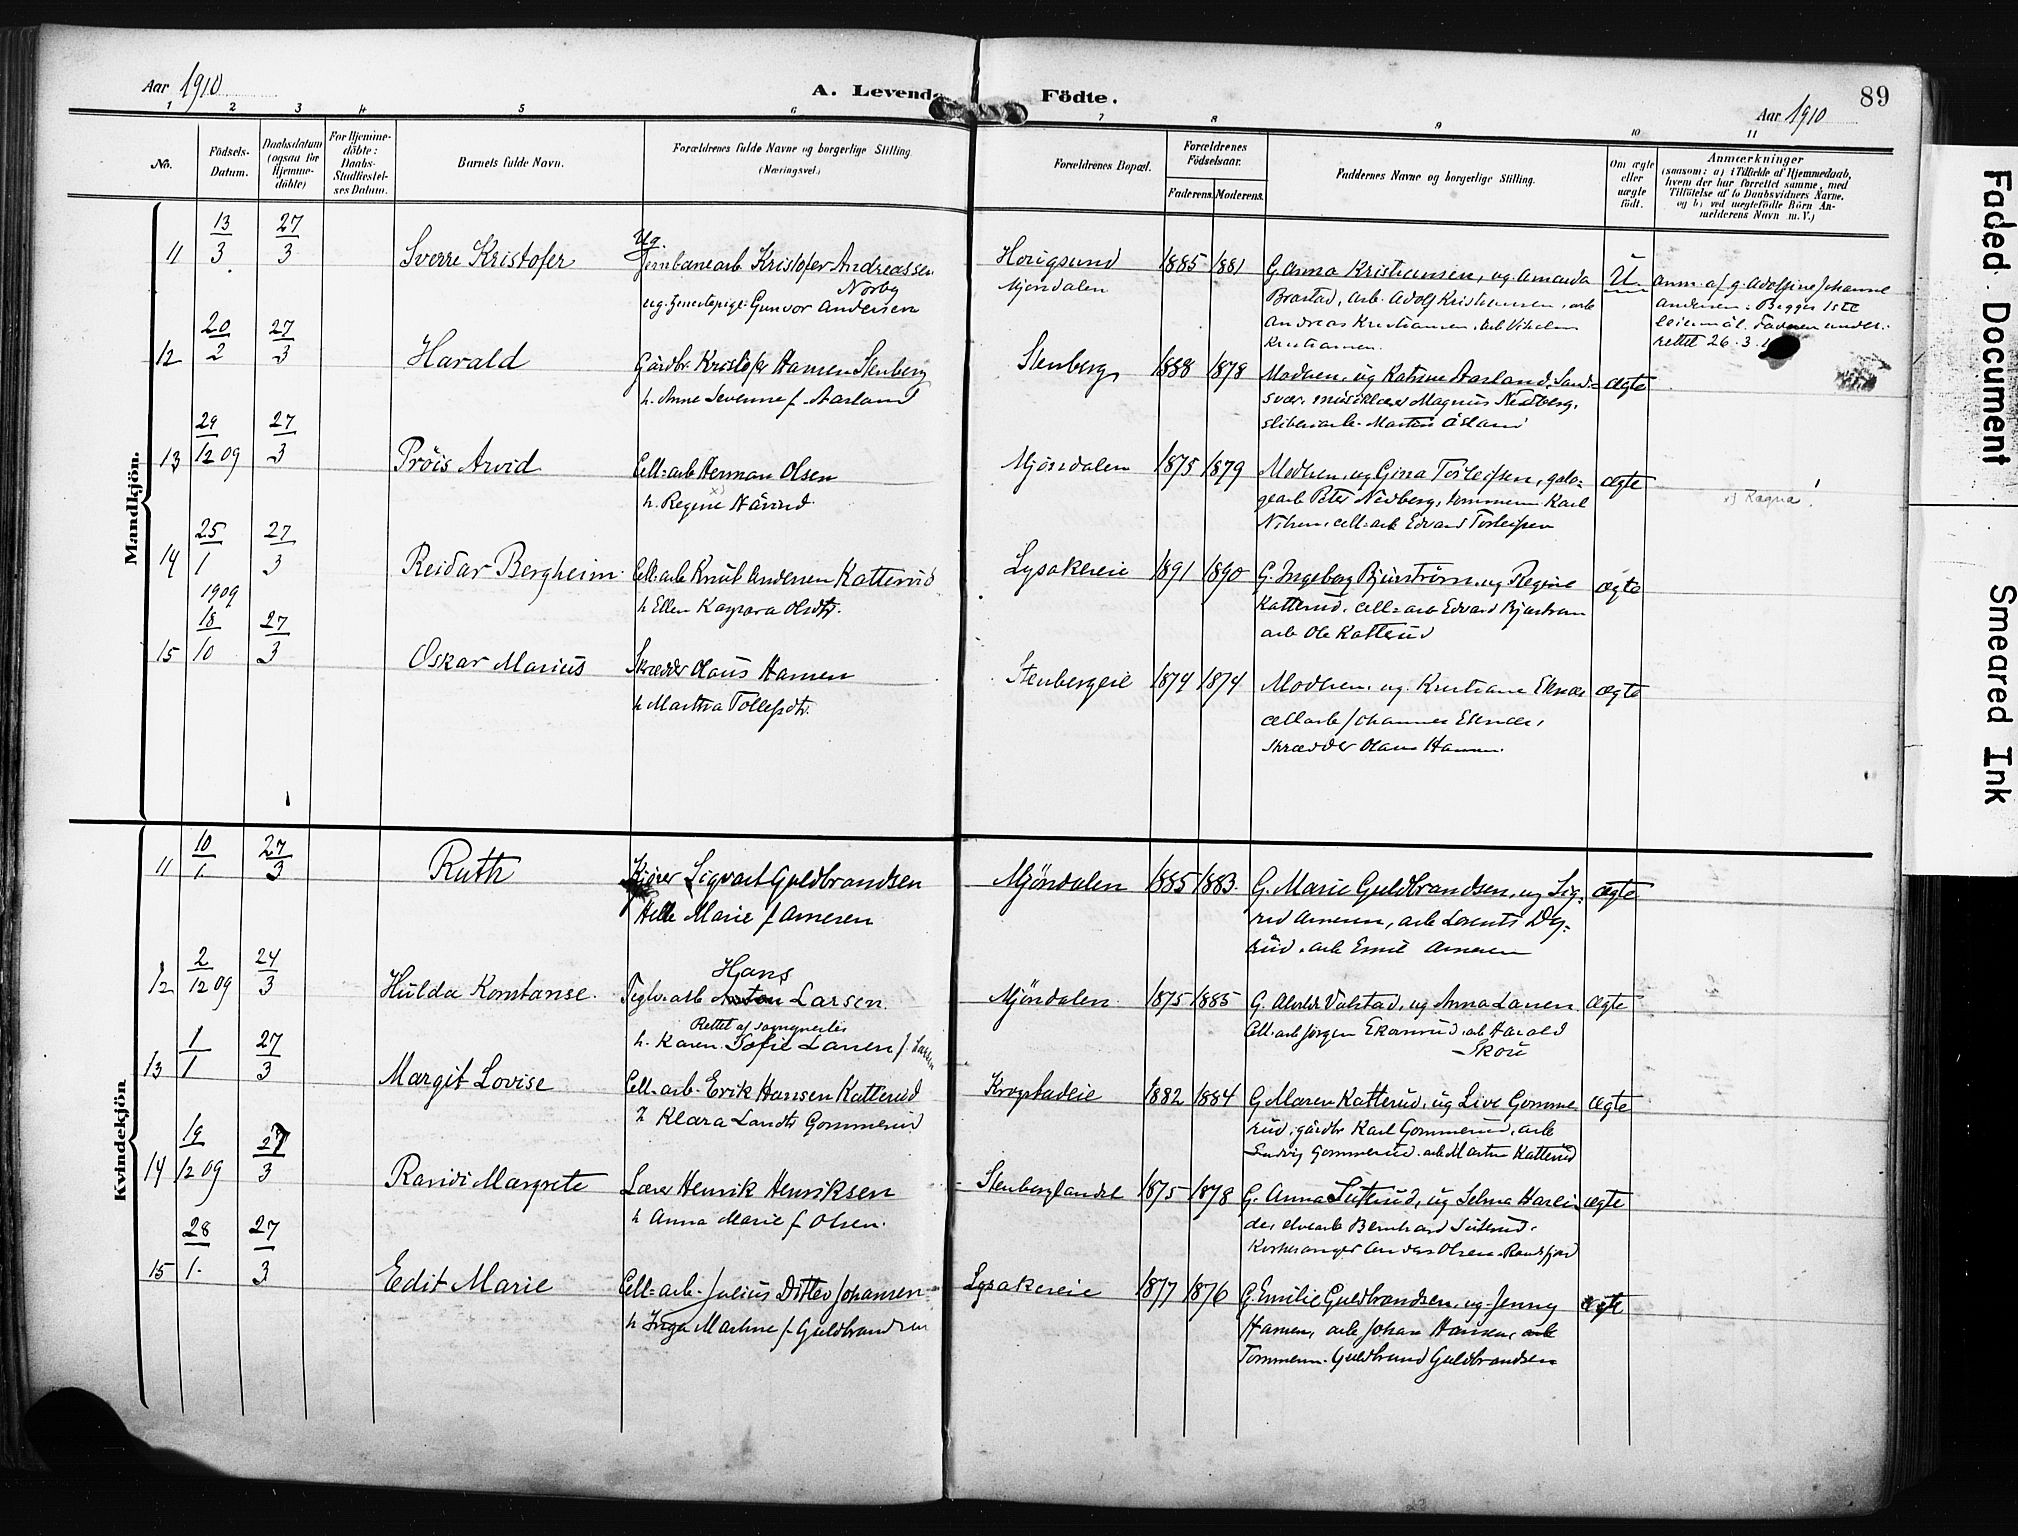 Aar 1910
A. Levende Födte.
89
Aar 1910
1 2 3 4 5 6 7 8 9 10 11
No.
Födsels-Datum.
Daabsdatum (ogsaa for Hjemmedöbte)
For Hjemmedöbte: Daabs-Stadfæstelses Datum.
Barnets fulde Navn.
Forældrenes fulde Navne og borgerlige Stilling. (Næringsvei.)
Forældrenes Bopæl.
Forældrenes Födselsaar.
Faderens. Moderens.
Faddernes Navne og borgerlige Stilling.
Om ægte eller uægte födt.
Anmærkninger
(saasom: a) i Tilfælde af Hjemmedaab,
hvem der har forrettet samme, med
Tilföielse af to Daabsvidners Navne.
og b) ved uægtefödte Börn An-
melderens Navn m. V.)
Mandkjön.
11 13/3 27/3 Sverre Kristofer
Ug.
Jernbanearb. Kristofer Andreassen
Norby
ug. Gunvor Andersen
Hougsund
Mjöndalen
1885 1881
G. Anna Kristiansen, ug. Amanda
Brastad, arb. Adolf Kristiansen, arb
Andreas Kristiansen, arb. Vilhelm
Kristiansen.
U.
anm. af g. Adolfine Johanne
Andersen. Begges 1ste
leiermål. Faderen under-
rettet 26.3.
12 20/2 27/3 Harald
Gårdbr. Kristofer Hansen Stenberg
h. Anne Severine f. Aasland
Stenberg 1888 1878
Modren, ug Katrine Aasland, Sand-
svær, Magnus Nedberg,
sliberiarb. Martin Åsland
ægte
13 29/12 09 27/3 Pröis Arvid
Cell.arb Herman Olsen
h. Regine x) Hårind.
Mjöndalen 1875 1879
Modren, ug Gina Torleifsen,
Peter Nedberg, tömmerm. Karl
Nilsen, cell.arb Edvard Torleifsen
ægte
x) Ragna!
14 25/1 27/3 Reidar Bergheim
Cell.arb Knut Andersen Katterud
h Ellen Kaspara Olsdtr.
Lysakereie 1891 1890
G. Ingeborg Bjurström, ug Regine
Katterud, cell=arb Edvard Bjurström
arb Ole Katterud
ægte
15 1909 18/10 27/3 Oskar Marius
Skrædder Olaus Hansen
h Martha Tollefsdtr.
Stenbergeie 1874 1874
Modren, ug. Kristiane Eknæs
cellarb Johannes Eknæs,
skrædder Olaus Hansen.
ægte
Kvindekjön
11 10/1 27/3 Ruth
Kjörer Sigvart Guldbrandsen
Helle Marie f Arnesen
Mjöndalen 1885 1883.
G. Marie Guldbrandsen, ug Sig-
rid Arnesen, arb Lorents Dy-
rud, arb Emil Arnesen
ægte
12 2/12 09 24/3 Hulda Konstanse.
Hans
Teglv.arb Anton Larsen.
Rettet af sognepræsten
h. Karen Sofie Larsen f. Larsen
Mjöndalen 1875 1885
G. Valstad, ug Anna Larsen
Cell.arb Jörgen Ekornrud, arb Harald
Skou
ægte
13 1/1 27/3 Margit Lovise
Cell.arb. Erik Hansen Katterud
h Klara Larsdtr Gommerud
Krogstadeie 1882 1884
G Maren Katterud, ug Live Gomme
rud, gårdbr Karl Gommerud, arb
Ludvig Gommerud, arb Martin Katterud
ægte
14 19/12 09 27/3 Randi Margrete
Lærer Henrik Henriksen
h Anna Marie f Olsen.
Stenberglandet 1875 1878
G. Anna Seterud, ug Selma
Bernhard Seterud,
Kirkesanger Olsen Randsfjord
ægte
15 28/1 27/3 Edit Marie
Cell.arb. Julius Ditlev Johansen
h Inga Mathine f. Guldbrandsen
Lysakereie 1877 1876
G. Emilie Guldbrandsen, ug Jenny
Hansen, arb Johan Hansen, arb
Tömmerm. Guldbrand Guldbrandsen
ægte
Faded Document
Smeared Ink